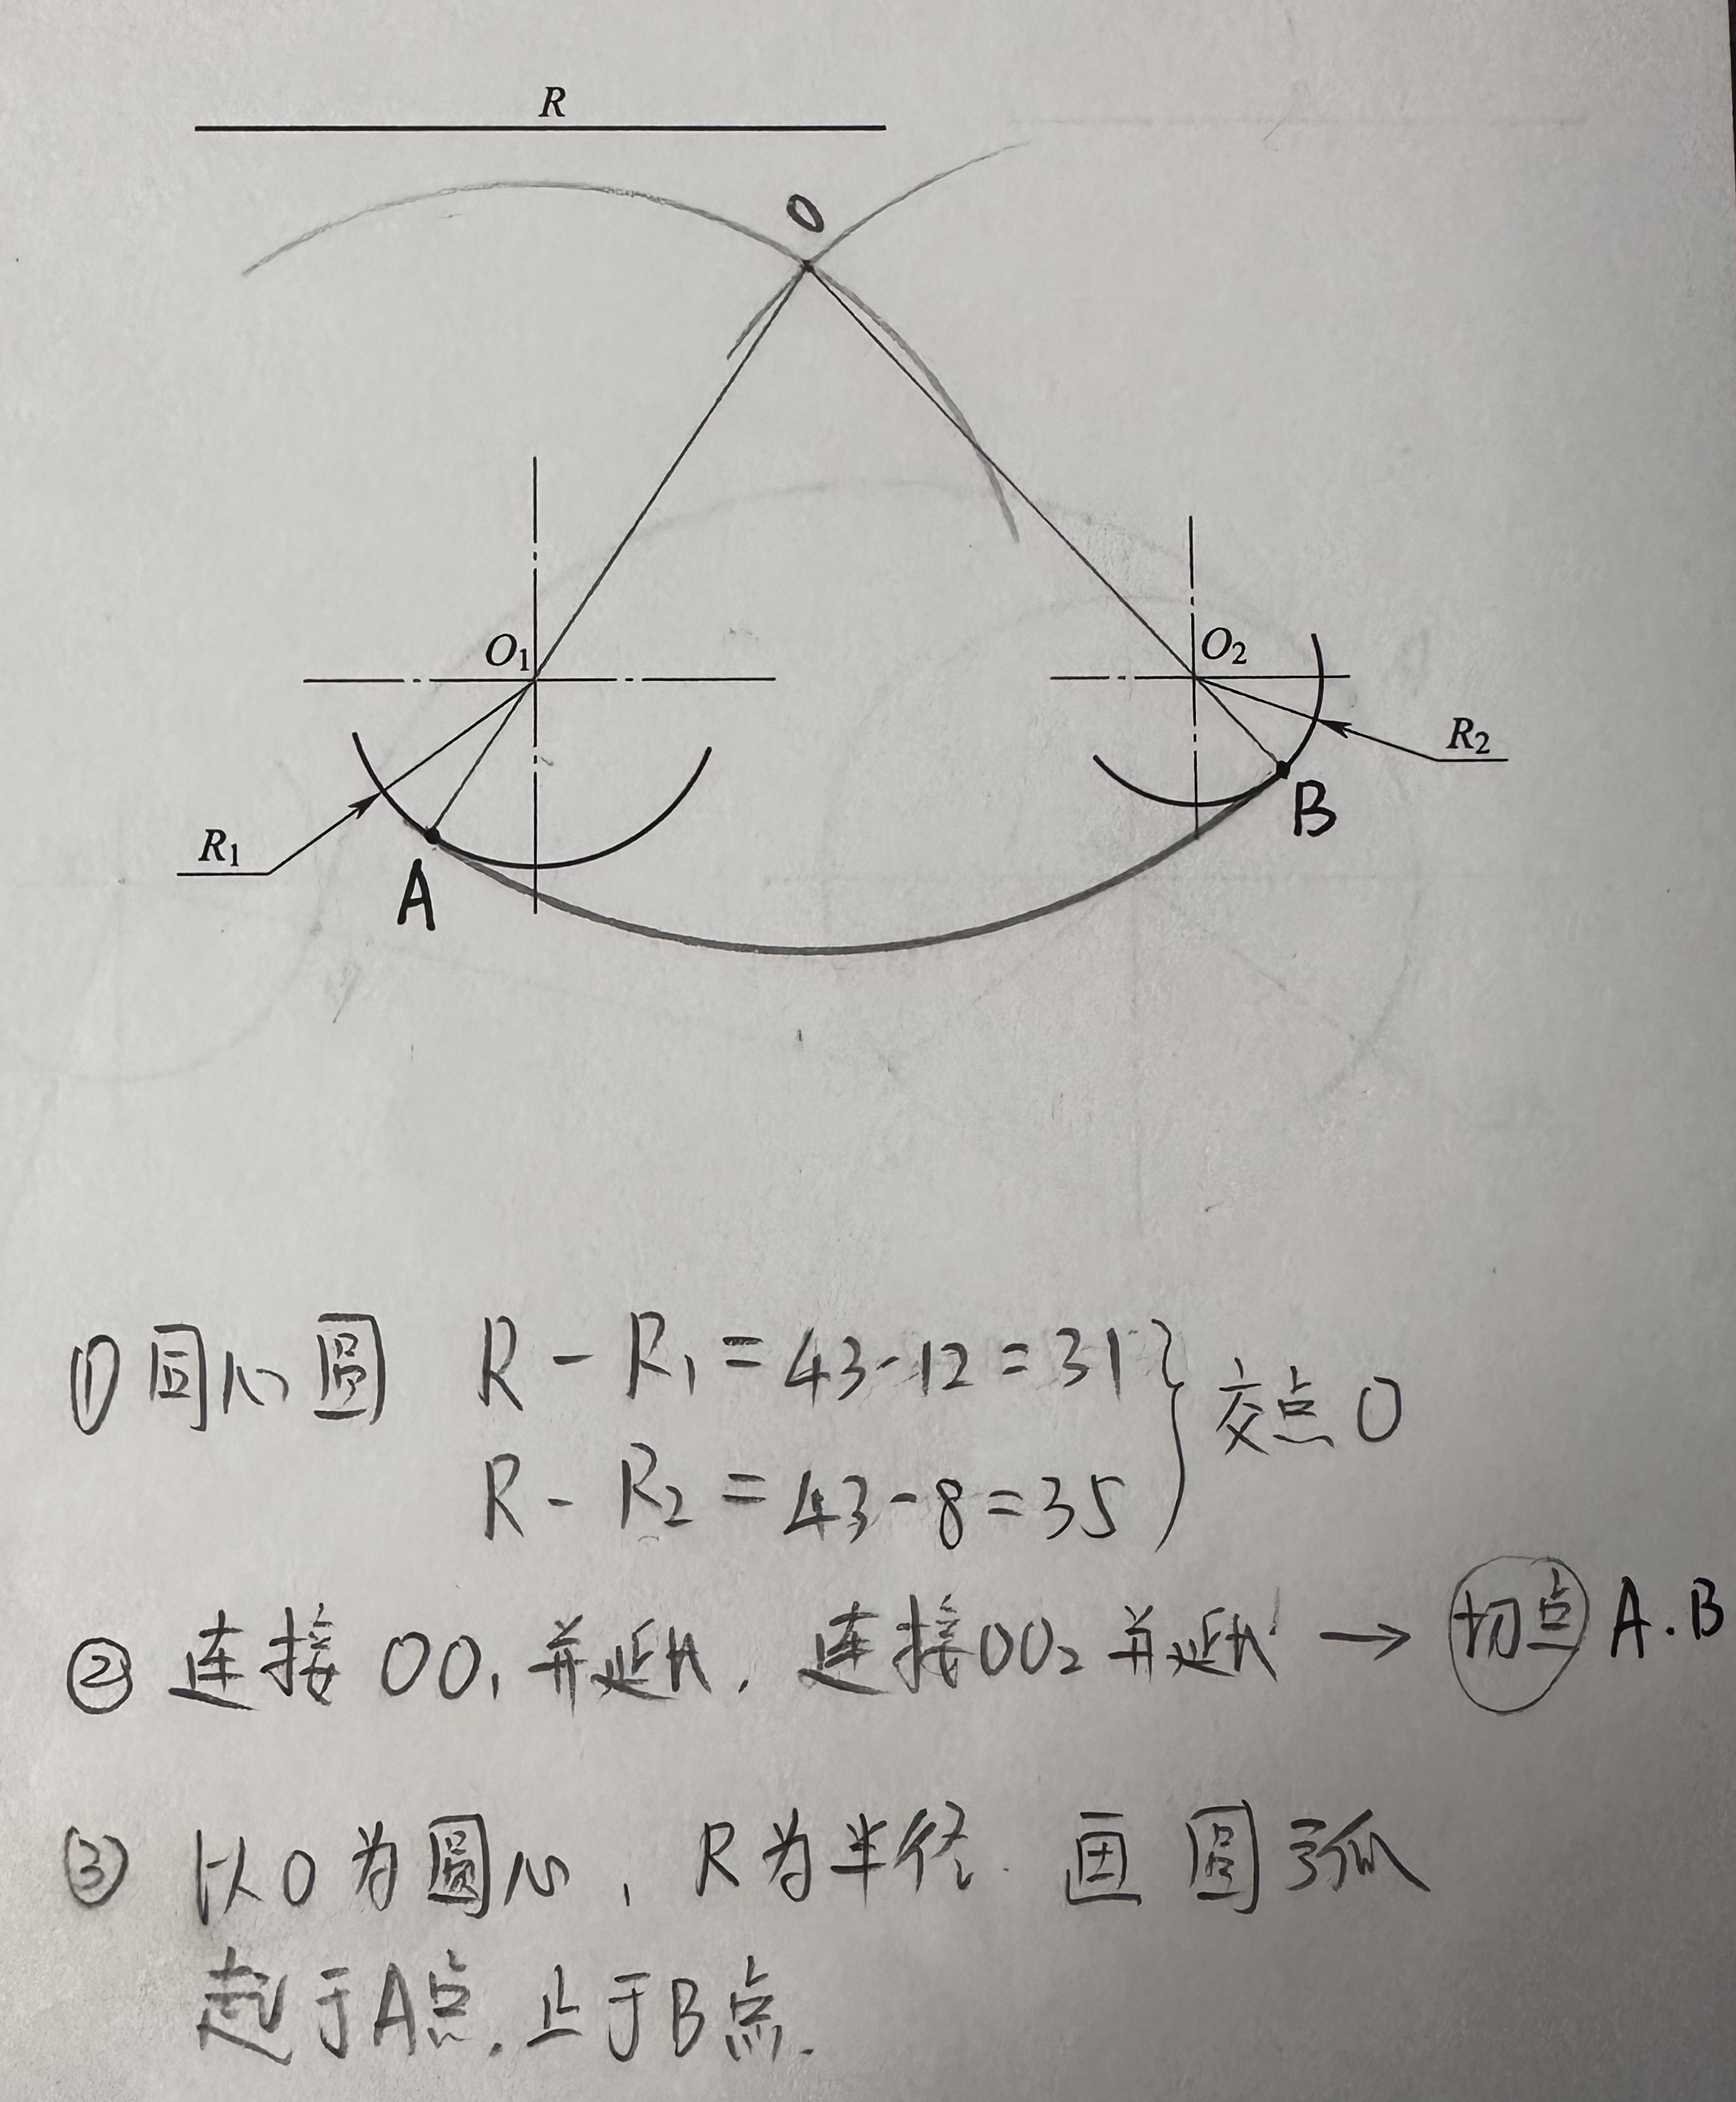 R
O
O₁
O₂
R₂
R₁
A
B
①同心圆 R-R₁=43-12=31
R-R₂=43-8=35
交点O
②连接OO₁并延长,连接OO₂并延长→切点A.B
③以O为圆心,R为半径.画圆弧
起于A点.止于B点.